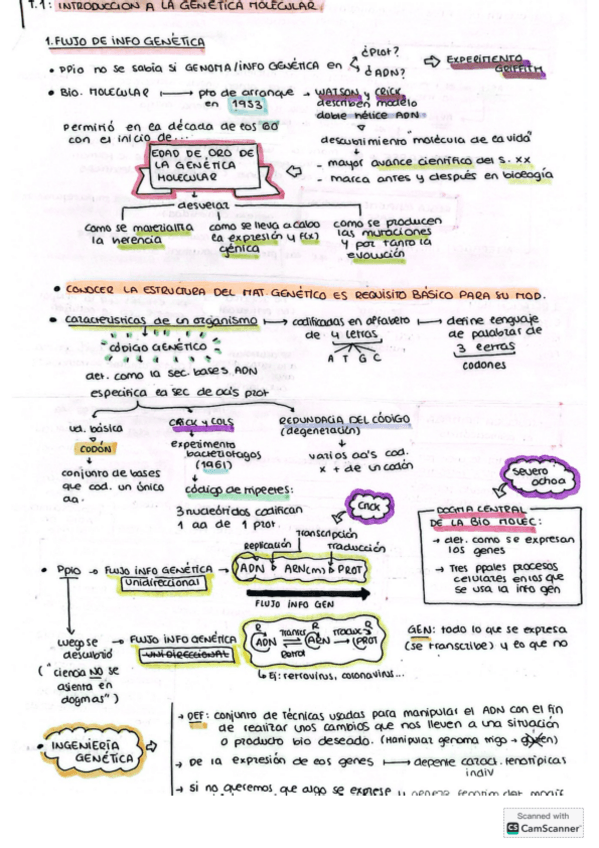 T.1: INTRODUCCION A LA GENÉTICA MOLECULAR
1. FLUJO DE INFO GENÉTICA
• PPio no se sabía si GENOMA/INFO GENÉTICA en ¿Prot? ¿ADN? ⇨ EXPERIMENTO GRIFFITH
• BIO. MOLECULAR → pto de arranque en 1953 → WATSON y CRICK describen modelo doble hélice ADN
permitió en la década de los 60 con el inicio de...
descubrimiento "molécula de la vida"
- mayor avance científico del S. XX
- marca antes y después en biología
EDAD DE ORO DE LA GENÉTICA MOLECULAR
desvelar
como se materializa la herencia
como se lleva a cabo la expresión y f(x) génica
como se producen las mutaciones y por tanto la evolución
• CONOCER LA ESTRUCTURA DEL MAT. GENÉTICO ES REQUISITO BÁSICO PARA SU MOD.
• Características de un organismo → codificadas en alfabeto de 4 letras → define lenguaje de palabras de 3 letras
A T G C
codones
CÓDIGO GENÉTICO
det. como la sec. bases ADN
especifica la sec de aa's prot
ud. básica
CODÓN
conjunto de bases que cod. un único aa.
CRICK y COLS
experimento bacteriófagos (1961)
código de tripletes:
3 nucleótidos codifican 1 aa de 1 prot.
REDUNDACIA DEL CÓDIGO (degeneración)
varios aa's cod. x + de un codón
severo ochoa
CRICK
DOGMA CENTRAL DE LA BIO MOLEC:
→ det. como se expresan los genes
→ Tres ppales procesos celulares en los que se usa la info gen
Replicación
Transcripción
Traducción
• Ppio → FLUJO INFO GENÉTICA → ADN → ARN(m) → PROT
unidireccional
FLUJO INFO GEN
luego se descubrió → FLUJO INFO GENÉTICA
UNIDIRECCIONAL
("ciencia NO se asienta en dogmas")
R R R
ADN ARN PROT
Ej: retrovirus, coronavirus...
GEN: todo lo que se expresa (se transcribe) y lo que no
• INGENIERÍA GENÉTICA
→ DEF: conjunto de técnicas usadas para manipular el ADN con el fin
de realizar unos cambios que nos lleven a una situación
o producto bio deseado. (Manipular genoma trigo →
→ De la expresión de los genes → depende caract. fenotípicas
indiv
→ si no queremos que algo se exprese
Scanned with
CS CamScanner